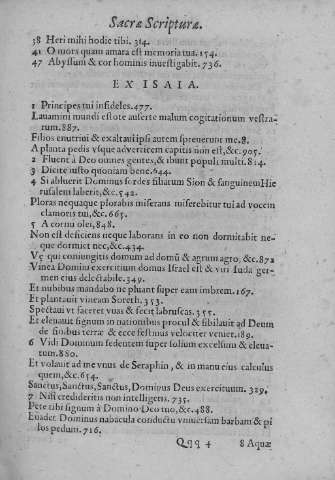 Sacræ Scripturæ.
38 Heri mihi hodie tibi. 314.
41 O mors quam amara est memoria tua. 154.
47 Abyssum & cor hominis investigabit. 736.
EX ISAIA.
1 Principes tui infideles. 477.
Lauamini mundi estote auferte malum cogitationum vestra-
rum. 887.
Filios enutriui & exaltaui ipsi autem spreuerunt me. 8.
A planta pedis vsque ad verticem capitis non est, &c. 905.
2 Fluent à Deo omnes gentes, & ibunt populi multi. 814.
3 Dicite iusto quoniam bene. 644.
4 Si abluerit Dominus sordes filiarum Sion & sanguinem Hie
rusalem laberit, &c. 542.
Ploras nequaque plorabis miserans miserebitur tui ad vocem
clamoris tui, &c. 665.
5 A cornu olei, 848.
Non est deficiens neque laborans in eo non dormitabit ne-
que dormiet nec, &c. 434.
Vę qui coniungitis domum ad domũ & agrum agro, &c. 872
Vinea Domini exercituum domus Israel est & viri Iuda ger-
men eius delectabile. 349.
Et nubibus mandabo ne pluant super eam imbrem. 167.
Et plantauit vineam Soreth. 353.
Spectaui vt faceret vuas & fecit labruscas. 355.
Et eleuauit signum in nationibus procul & sibilauit ad Deum
de finibus terræ & ecce festinus velociter veniet. 189.
6 Vidi Dominum sedentem super solium excelsum & eleua-
tum. 880.
Et volauit ad me vnus de Seraphin, & in manu eius calculus
quem, &c. 654.
Sanctus, Sanctus, Sanctus, Dominus Deus exercituum. 329.
7 Nisi credideritis non intelligens. 735.
Pete tibi signum à Domino Deo tuo, &c. 488.
Euadet Dominus nabacula conductu vniuersam barbam & pi
los pedum. 716.
Qqq 4 8 Aquæ